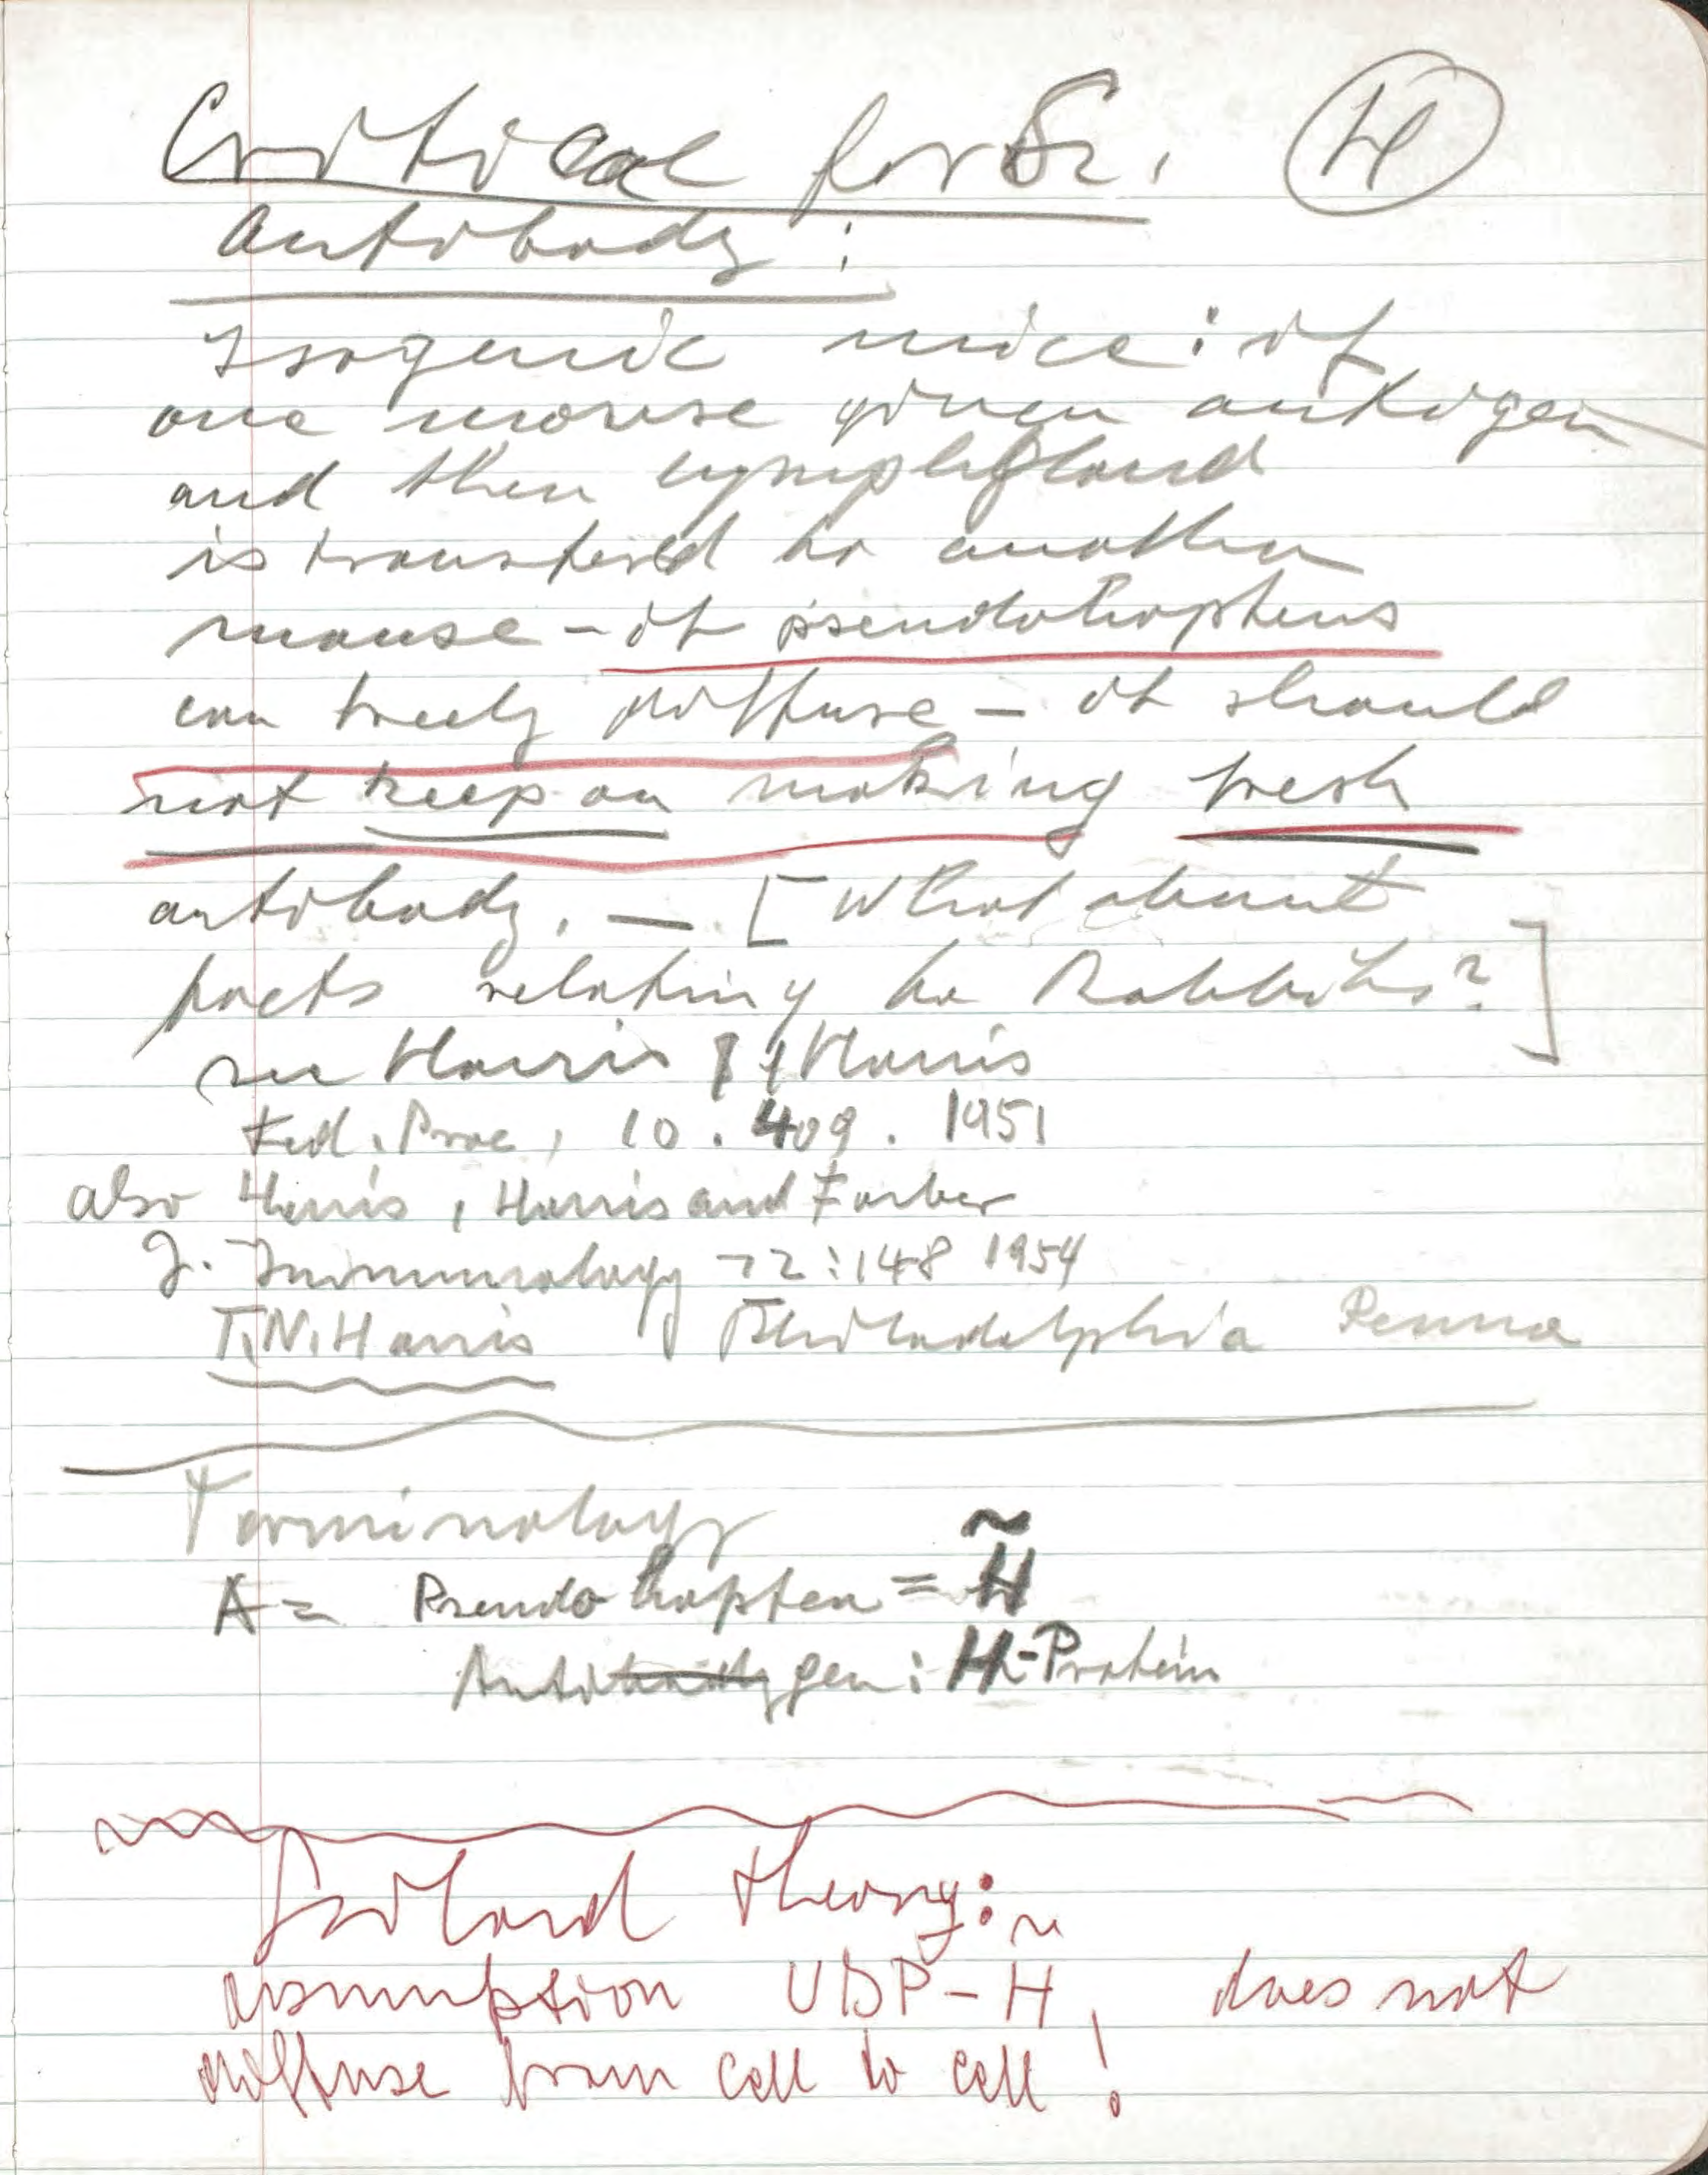 Critical for Sz.
Antibody:
Isogenic mice: if
one mouse given antigen
and then lymphgland
is transfered to another
mouse – if pseudohaptens
can freely diffuse – it should
not keep on making fresh
antibody. – [What about
facts relating to Rabbits?]
see Harris & Harris
Fed. Proc, 10. 409. 1951
also Harris, Harris and Farber
J. Immunology 72:148 1954
T.N. Harris Philadelphia Penna
Terminology
A = Pseudo hapten = H̃
Antibodygen: H-Protein
theory:
assumption UDP-H̃, does not
diffuse from cell to cell!